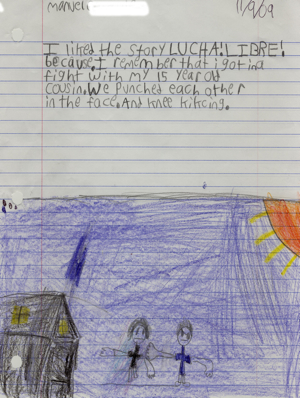 manuel
11/9/09
I liked the story LUCHA!LIBRE!
because.I remember that i got ina
fight with my 15 year old
cousin.We punched each other
in the face.And knee kikcing.